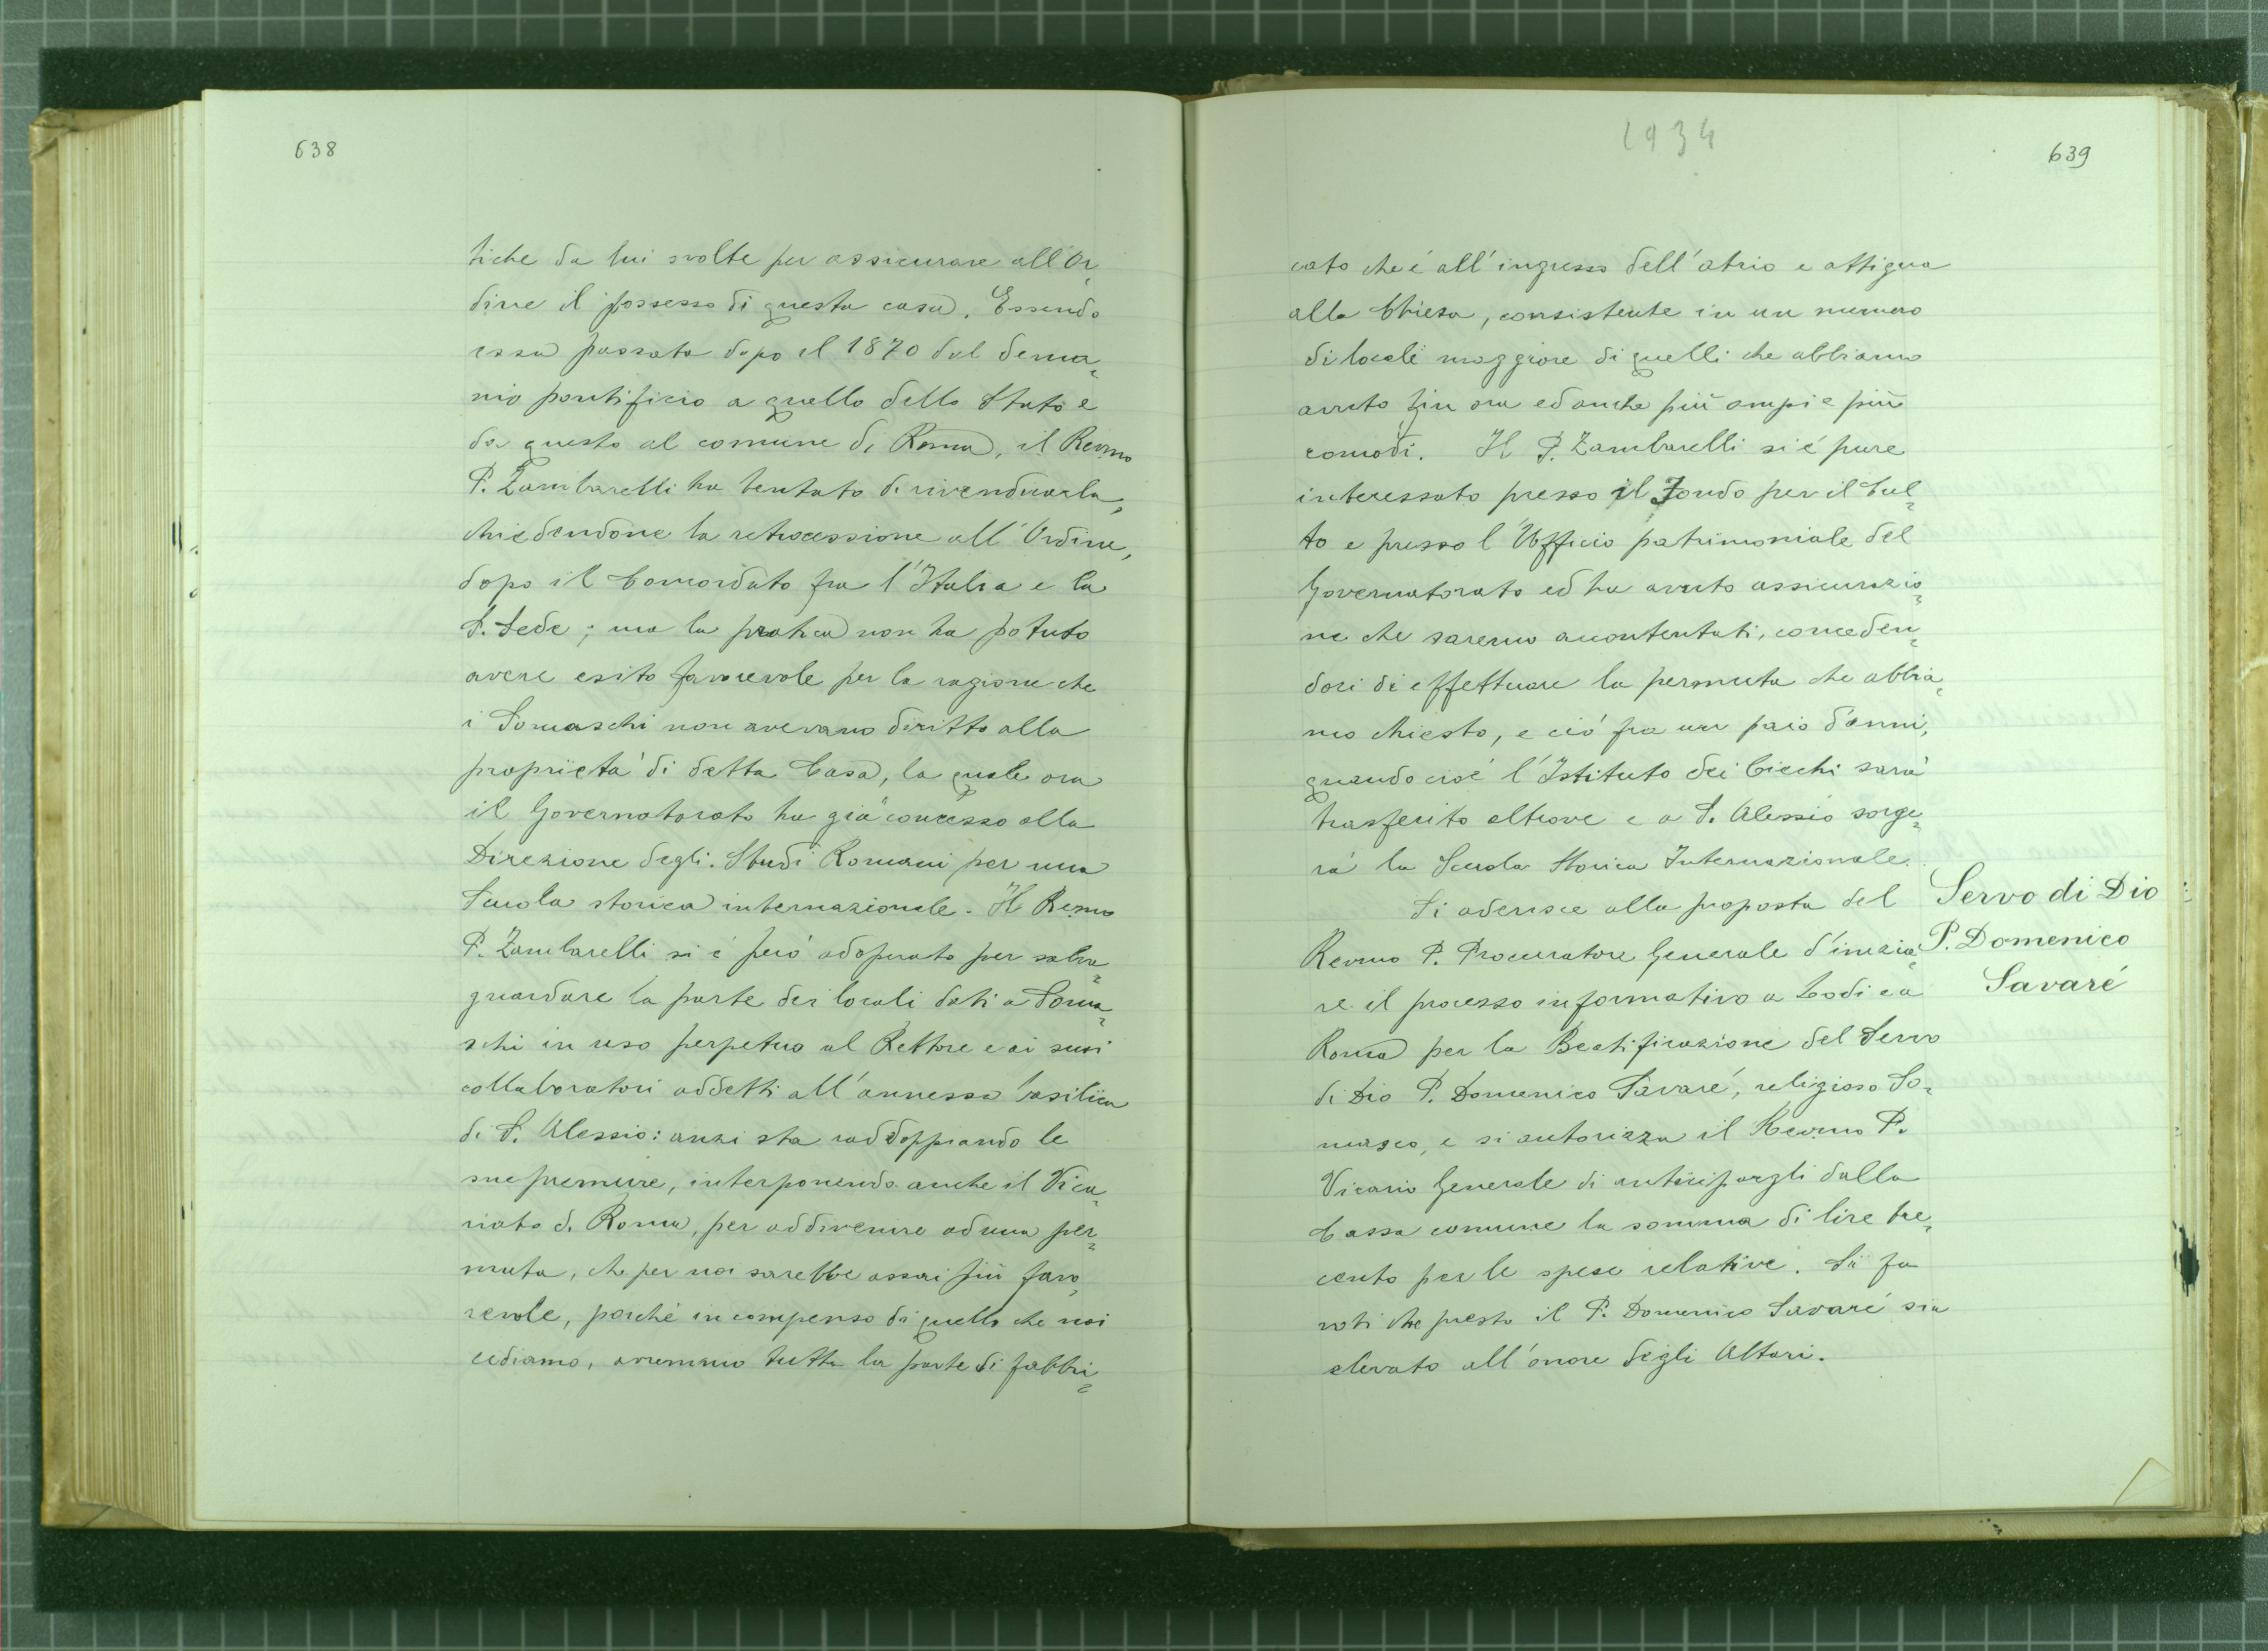 638
tiche da lui svolte per assicurare all'Or-
dine il possesso di questa casa. Essendo
essa passata dopo il 1870 dal dema-
nio pontificio a quello dello Stato e
da questo al comune di Roma, il Revmo
P. Zambarelli ha tentato di rivendicarla,
chiedendone la retrocessione all'Ordine,
dopo il Concordato fra l'Italia e la
S. Sede; ma la pratica non ha potuto
avere esito favorevole per la ragione che
i Somaschi non avevano diritto alla
proprietà di detta Casa, la quale ora
il Governatorato ha già concesso alla
Direzione degli Studi Romani per una
Scuola storica internazionale. Il Revmo
P. Zambarelli si è però adoperato per salva-
guardare la parte dei locali dati a Soma-
schi in uso perpetuo al Rettore e ai suoi
collaboratori addetti all'annessa basilica
di S. Alessio: anzi sta raddoppiando le
sue premure, interponendo anche il Vica-
riato di Roma, per addivenire ad una per-
muta, che per noi sarebbe assai più favo-
revole, perché in compenso di quello che noi
cediamo, avremmo tutta la parte di fabbri-
1934
639
cato che è all'ingresso dell'atrio e attigua
alla Chiesa, consistente in un numero
di locali maggiore di quelli che abbiamo
avuto fin ora ed anche più ampi e più
comodi. Il P. Zambarelli si è pure
interessato presso il Fondo per il Cul-
to e presso l'Ufficio patrimoniale del
Governatorato ed ha avuto assicurazio-
ne che saremo accontentati, conceden-
doci di effettuare la permuta che abbia-
mo chiesto, e ciò fra un paio d'anni,
quando cioè l'Istituto dei Ciechi sarà
trasferito altrove e a S. Alessio sorge-
rà la Scuola Storica Internazionale.
Si aderisce alla proposta del
Revmo P. Procuratore Generale d'inizia-
re il processo informativo a Lodi e a
Roma per la Beatificazione del Servo
di Dio P. Domenico Savaré, religioso So-
masco, e si autorizza il Revmo P.
Vicario Generale di anticipargli dalla
Cassa comune la somma di lire tre-
cento per le spese relative. Si fa
voti che presto il P. Domenico Savaré sia
elevato all'onore degli Altari.
Servo di Dio
P. Domenico
Savaré